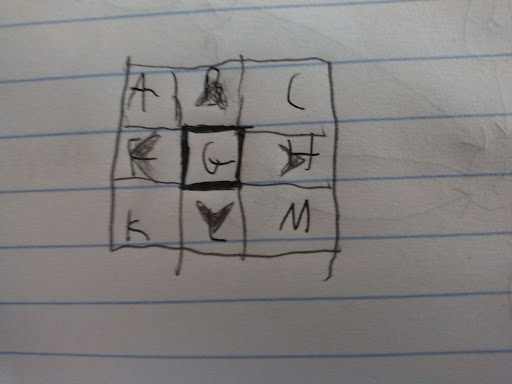 A B C
F G H
K L M